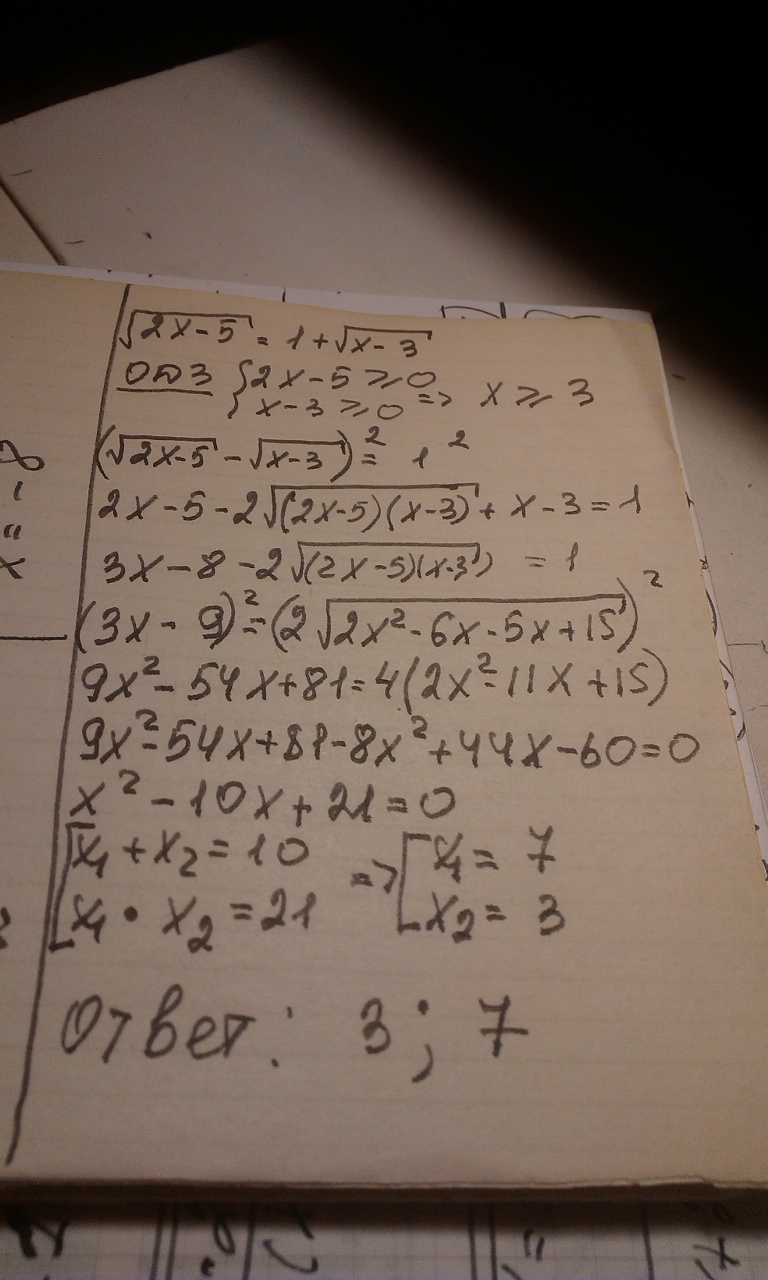 √(2x-5) = 1+√(x-3)
ОДЗ {2x-5 ⩾ 0
{x-3 ⩾ 0 => x ⩾ 3
(√(2x-5) - √(x-3))² = 1²
2x-5-2√((2x-5)(x-3)) + x-3=1
3x-8-2√((2x-5)(x-3)) = 1
(3x-9)²=(2√(2x²-6x-5x+15))²
9x²-54x+81=4(2x²-11x+15)
9x²-54x+81-8x²+44x-60=0
x²-10x+21=0
[x₁+x₂=10 => [x₁=7
[x₁·x₂=21 [x₂=3
Ответ: 3; 7